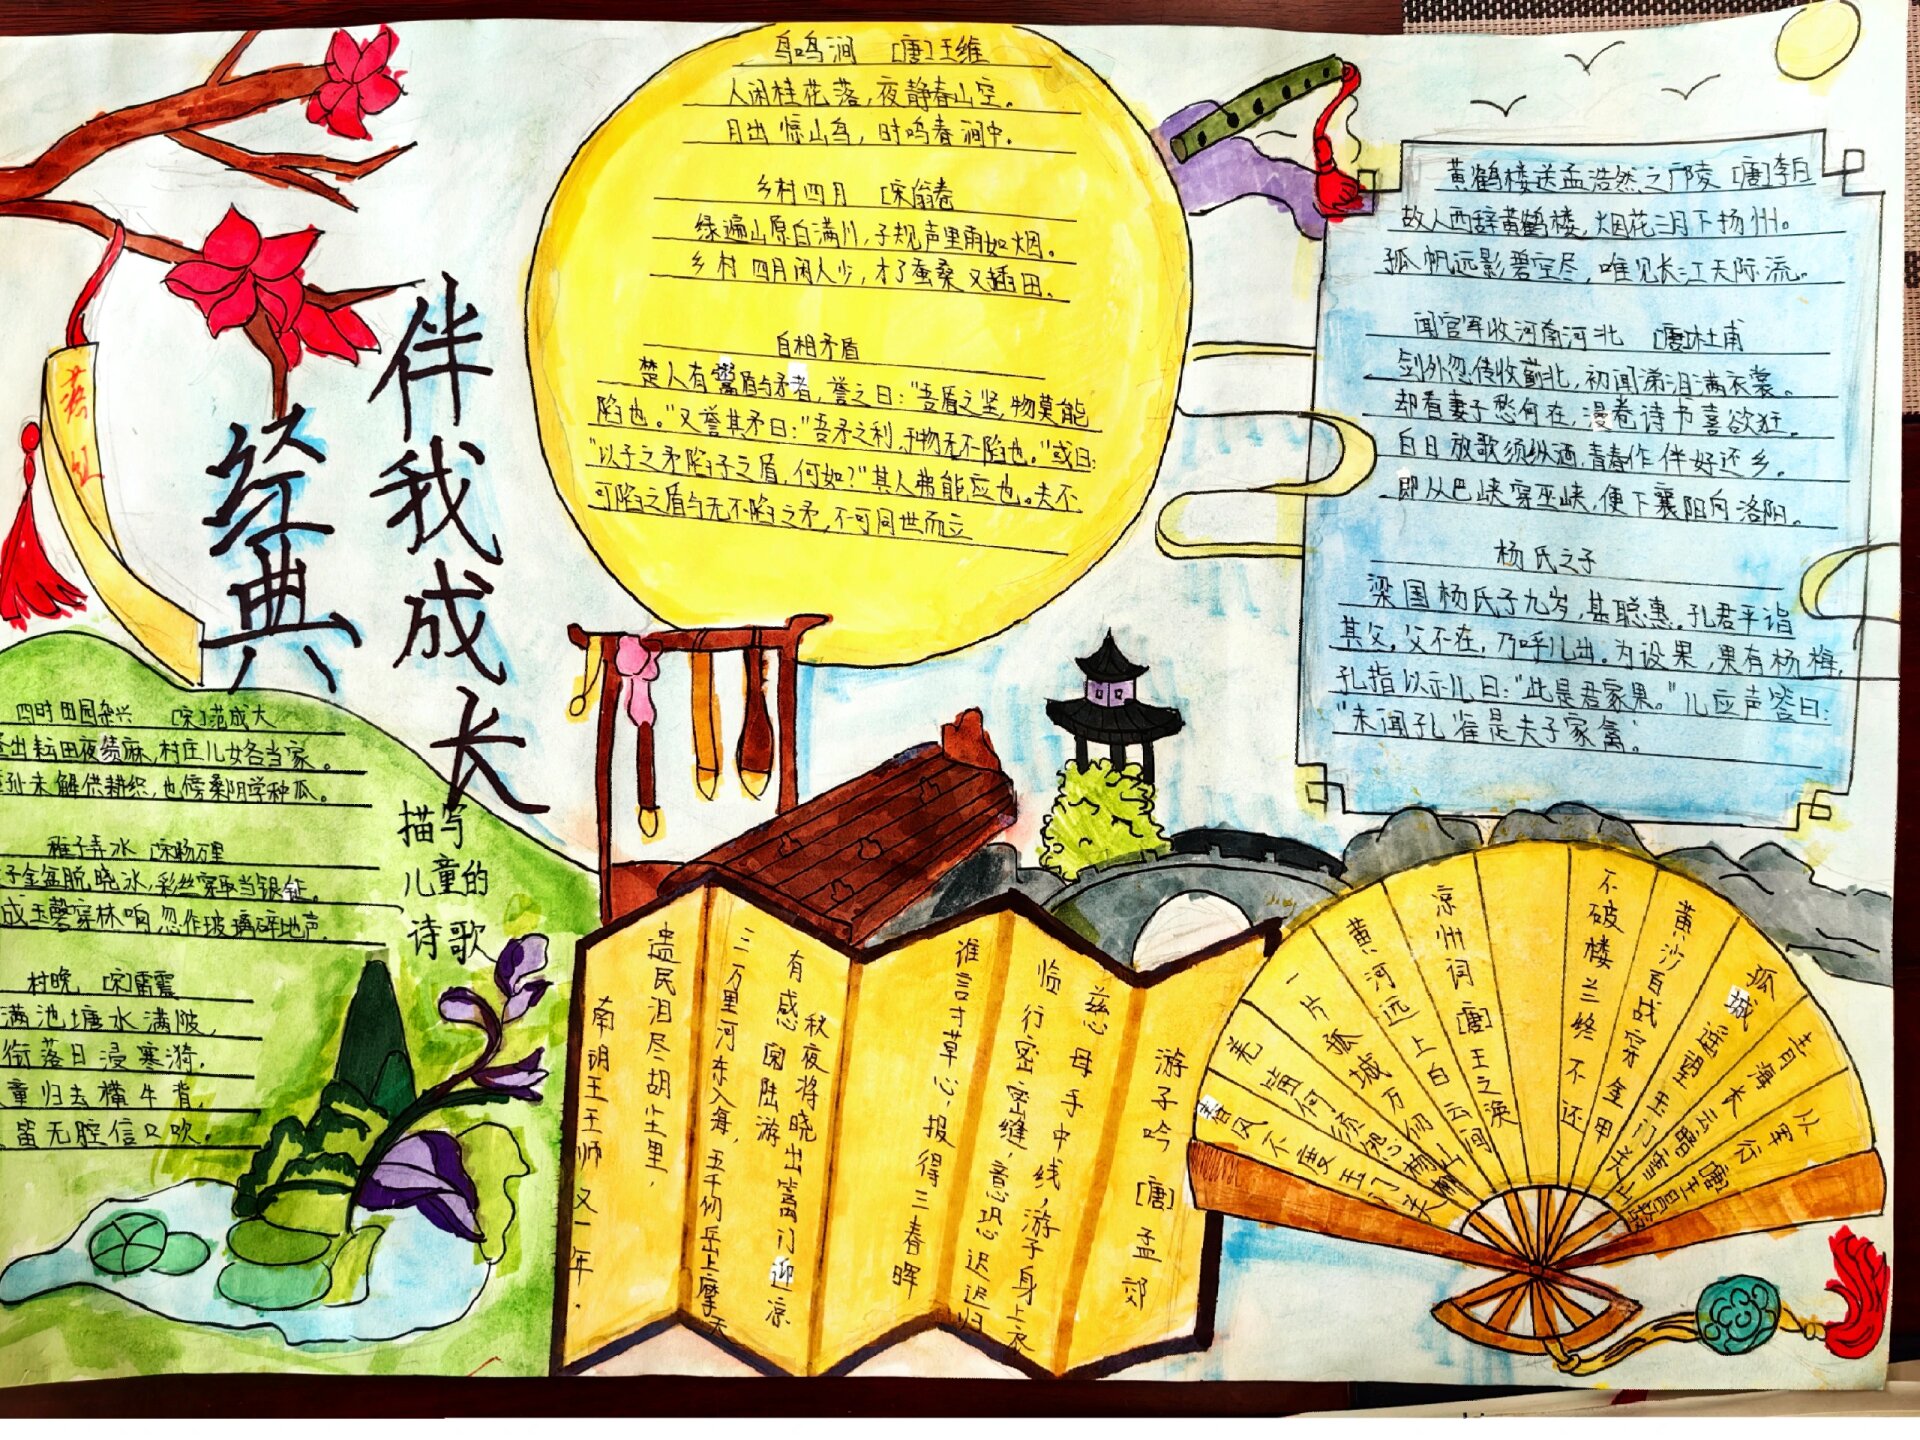 经典
伴我成长
描写
儿童的
诗歌
鸟鸣涧 [唐]王维
人闲桂花落,夜静春山空。
月出惊山鸟,时鸣春涧中。
乡村四月 [宋]翁卷
绿遍山原白满川,子规声里雨如烟。
乡村四月闲人少,才了蚕桑又插田。
自相矛盾
楚人有鬻盾与矛者,誉之曰:“吾盾之坚,物莫能
陷也。”又誉其矛曰:“吾矛之利,于物无不陷也。”或曰:
“以子之矛陷子之盾,何如?”其人弗能应也。夫不
可陷之盾与无不陷之矛,不可同世而立
黄鹤楼送孟浩然之广陵 [唐]李白
故人西辞黄鹤楼,烟花三月下扬州。
孤帆远影碧空尽,唯见长江天际流。
闻官军收河南河北 [唐]杜甫
剑外忽传收蓟北,初闻涕泪满衣裳。
却看妻子愁何在,漫卷诗书喜欲狂。
白日放歌须纵酒,青春作伴好还乡。
即从巴峡穿巫峡,便下襄阳向洛阳。
杨氏之子
梁国杨氏子九岁,甚聪惠。孔君平诣
其父,父不在,乃呼儿出。为设果,果有杨梅,
孔指以示儿曰:“此是君家果。”儿应声答曰:
“未闻孔雀是夫子家禽。
四时田园杂兴 [宋]范成大
出耘田夜绩麻,村庄儿女各当家。
孙未解供耕织,也傍桑阴学种瓜。
稚子弄水 [宋]杨万里
子金盆脱晓冰,彩丝穿取当银钲。
成玉磬穿林响,忽作玻璃碎地声。
村晚 [宋]雷震
满池塘水满陂,
衔落日浸寒漪。
童归去横牛背,
笛无腔信口吹。
游子吟 [唐]孟郊
慈母手中线,游子身上衣
临行密密缝,意恐迟迟归
谁言寸草心,报得三春晖
秋夜将晓出篱门迎凉
有感 [宋]陆游
三万里河东入海,五千仞岳上摩天
遗民泪尽胡尘里,
南望王师又一年.
从军行 [唐]王昌龄
青海长云暗雪山
孤城遥望玉门关
黄沙百战穿金甲
不破楼兰终不还
凉州词 [唐]王之涣
黄河远上白云间
一片孤城万仞山
羌笛何须怨杨柳
春风不度玉门关